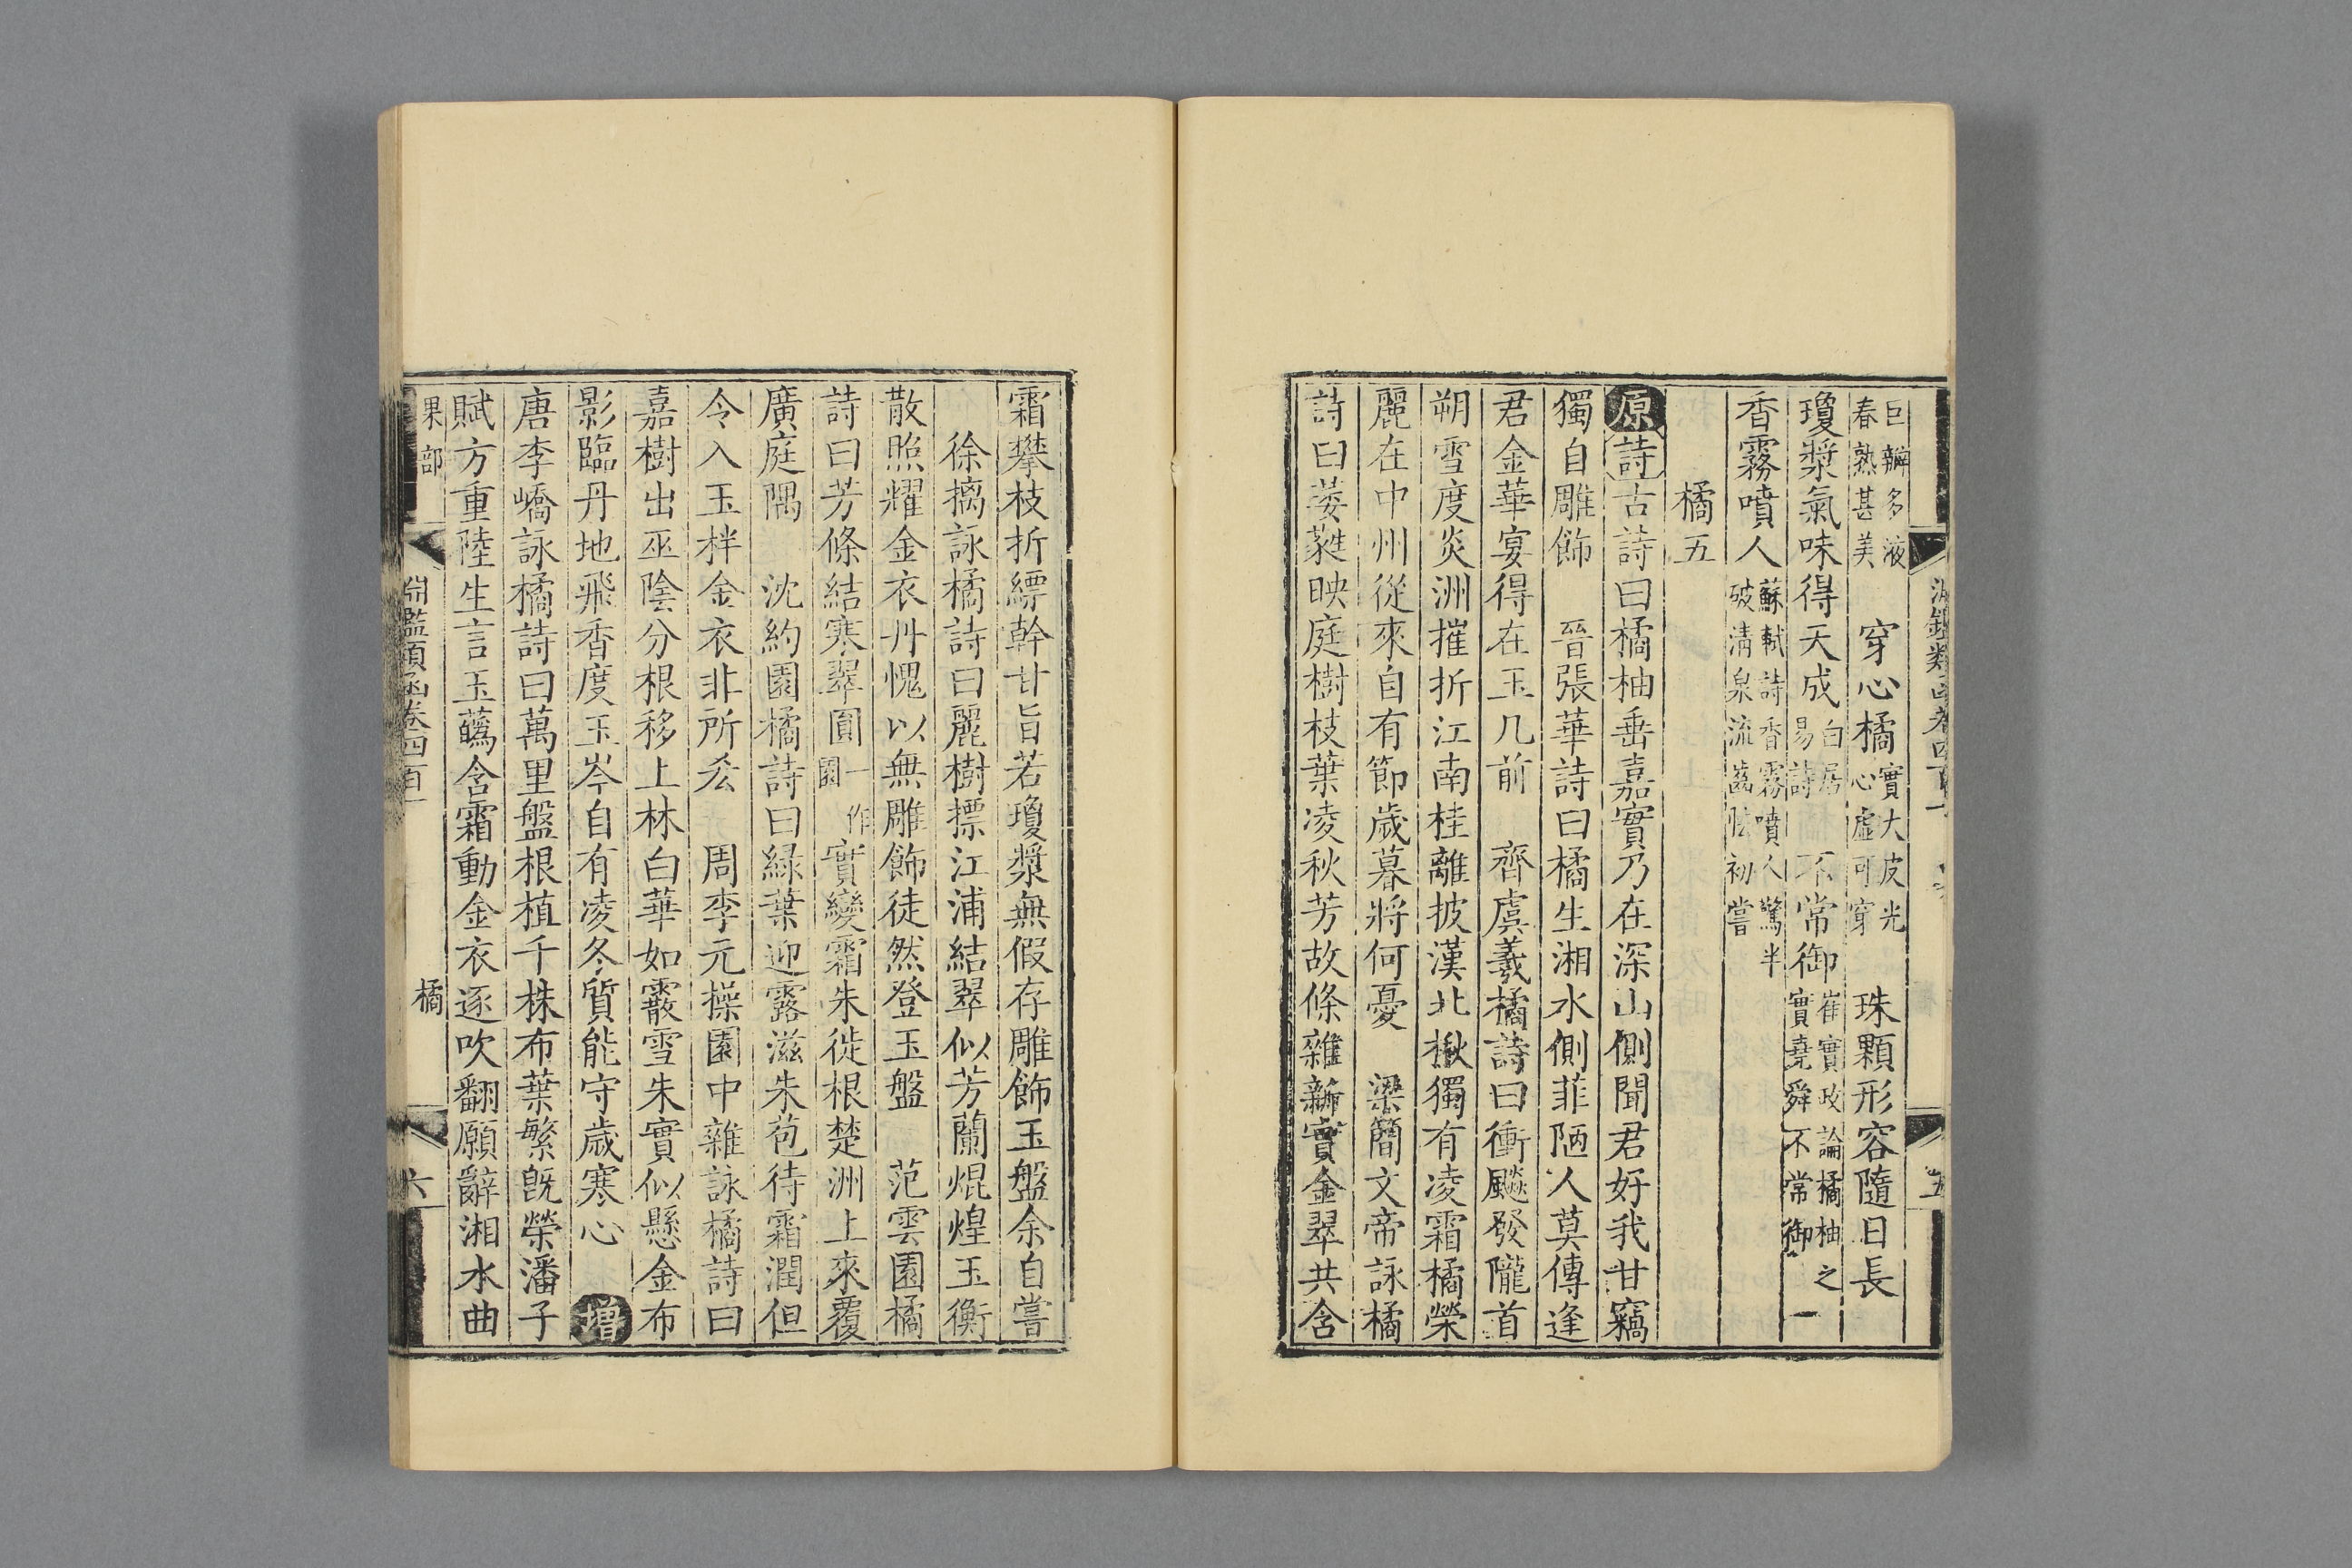 巨瓣多液春熟甚美　穿心橘實大皮光心虛可穿　珠顆形容隨日長
瓊漿氣味得天成白居易詩　不常御崔實政論橘柚之實堯舜不常御　一
香霧噴人蘇軾詩香霧噴人驚半破清泉流齒怯初嘗
橘五
原詩古詩曰橘柚垂嘉實乃在深山側聞君好我甘竊
獨自雕飾　晉張華詩曰橘生湘水側菲陋人莫傳逢
君金華宴得在玉几前　齊虞羲橘詩曰衝飈發隴首
朔雪度炎洲摧折江南桂離披漢北楸獨有凌霜橘榮
麗在中州從來自有節歲暮將何憂　梁簡文帝詠橘
詩曰萎蕤映庭樹枝葉凌秋芳故條雜新實金翠共含
霜攀枝折縹幹甘旨若瓊漿無假存雕飾玉盤余自嘗
徐摛詠橘詩曰麗樹標江浦結翠似芳蘭焜煌玉衡
散照耀金衣丹愧以無雕飾徒然登玉盤　范雲園橘
詩曰芳條結寒翠圓一作園實變霜朱徙根楚洲上來覆
廣庭隅　沈約園橘詩曰緑葉迎露滋朱苞待霜潤但
令入玉柈金衣非所𠫤　周李元操園中雜詠橘詩曰
嘉樹出巫陰分根移上林白華如霰雪朱實似懸金布
影臨丹地飛香度玉岑自有凌冬質能守歲寒心　增
唐李嶠詠橘詩曰萬里盤根植千株布葉繁旣榮潘子
賦方重陸生言玉蘤含霜動金衣逐吹翻願辭湘水曲
果部　淵鑑類函卷四百一　橘　六